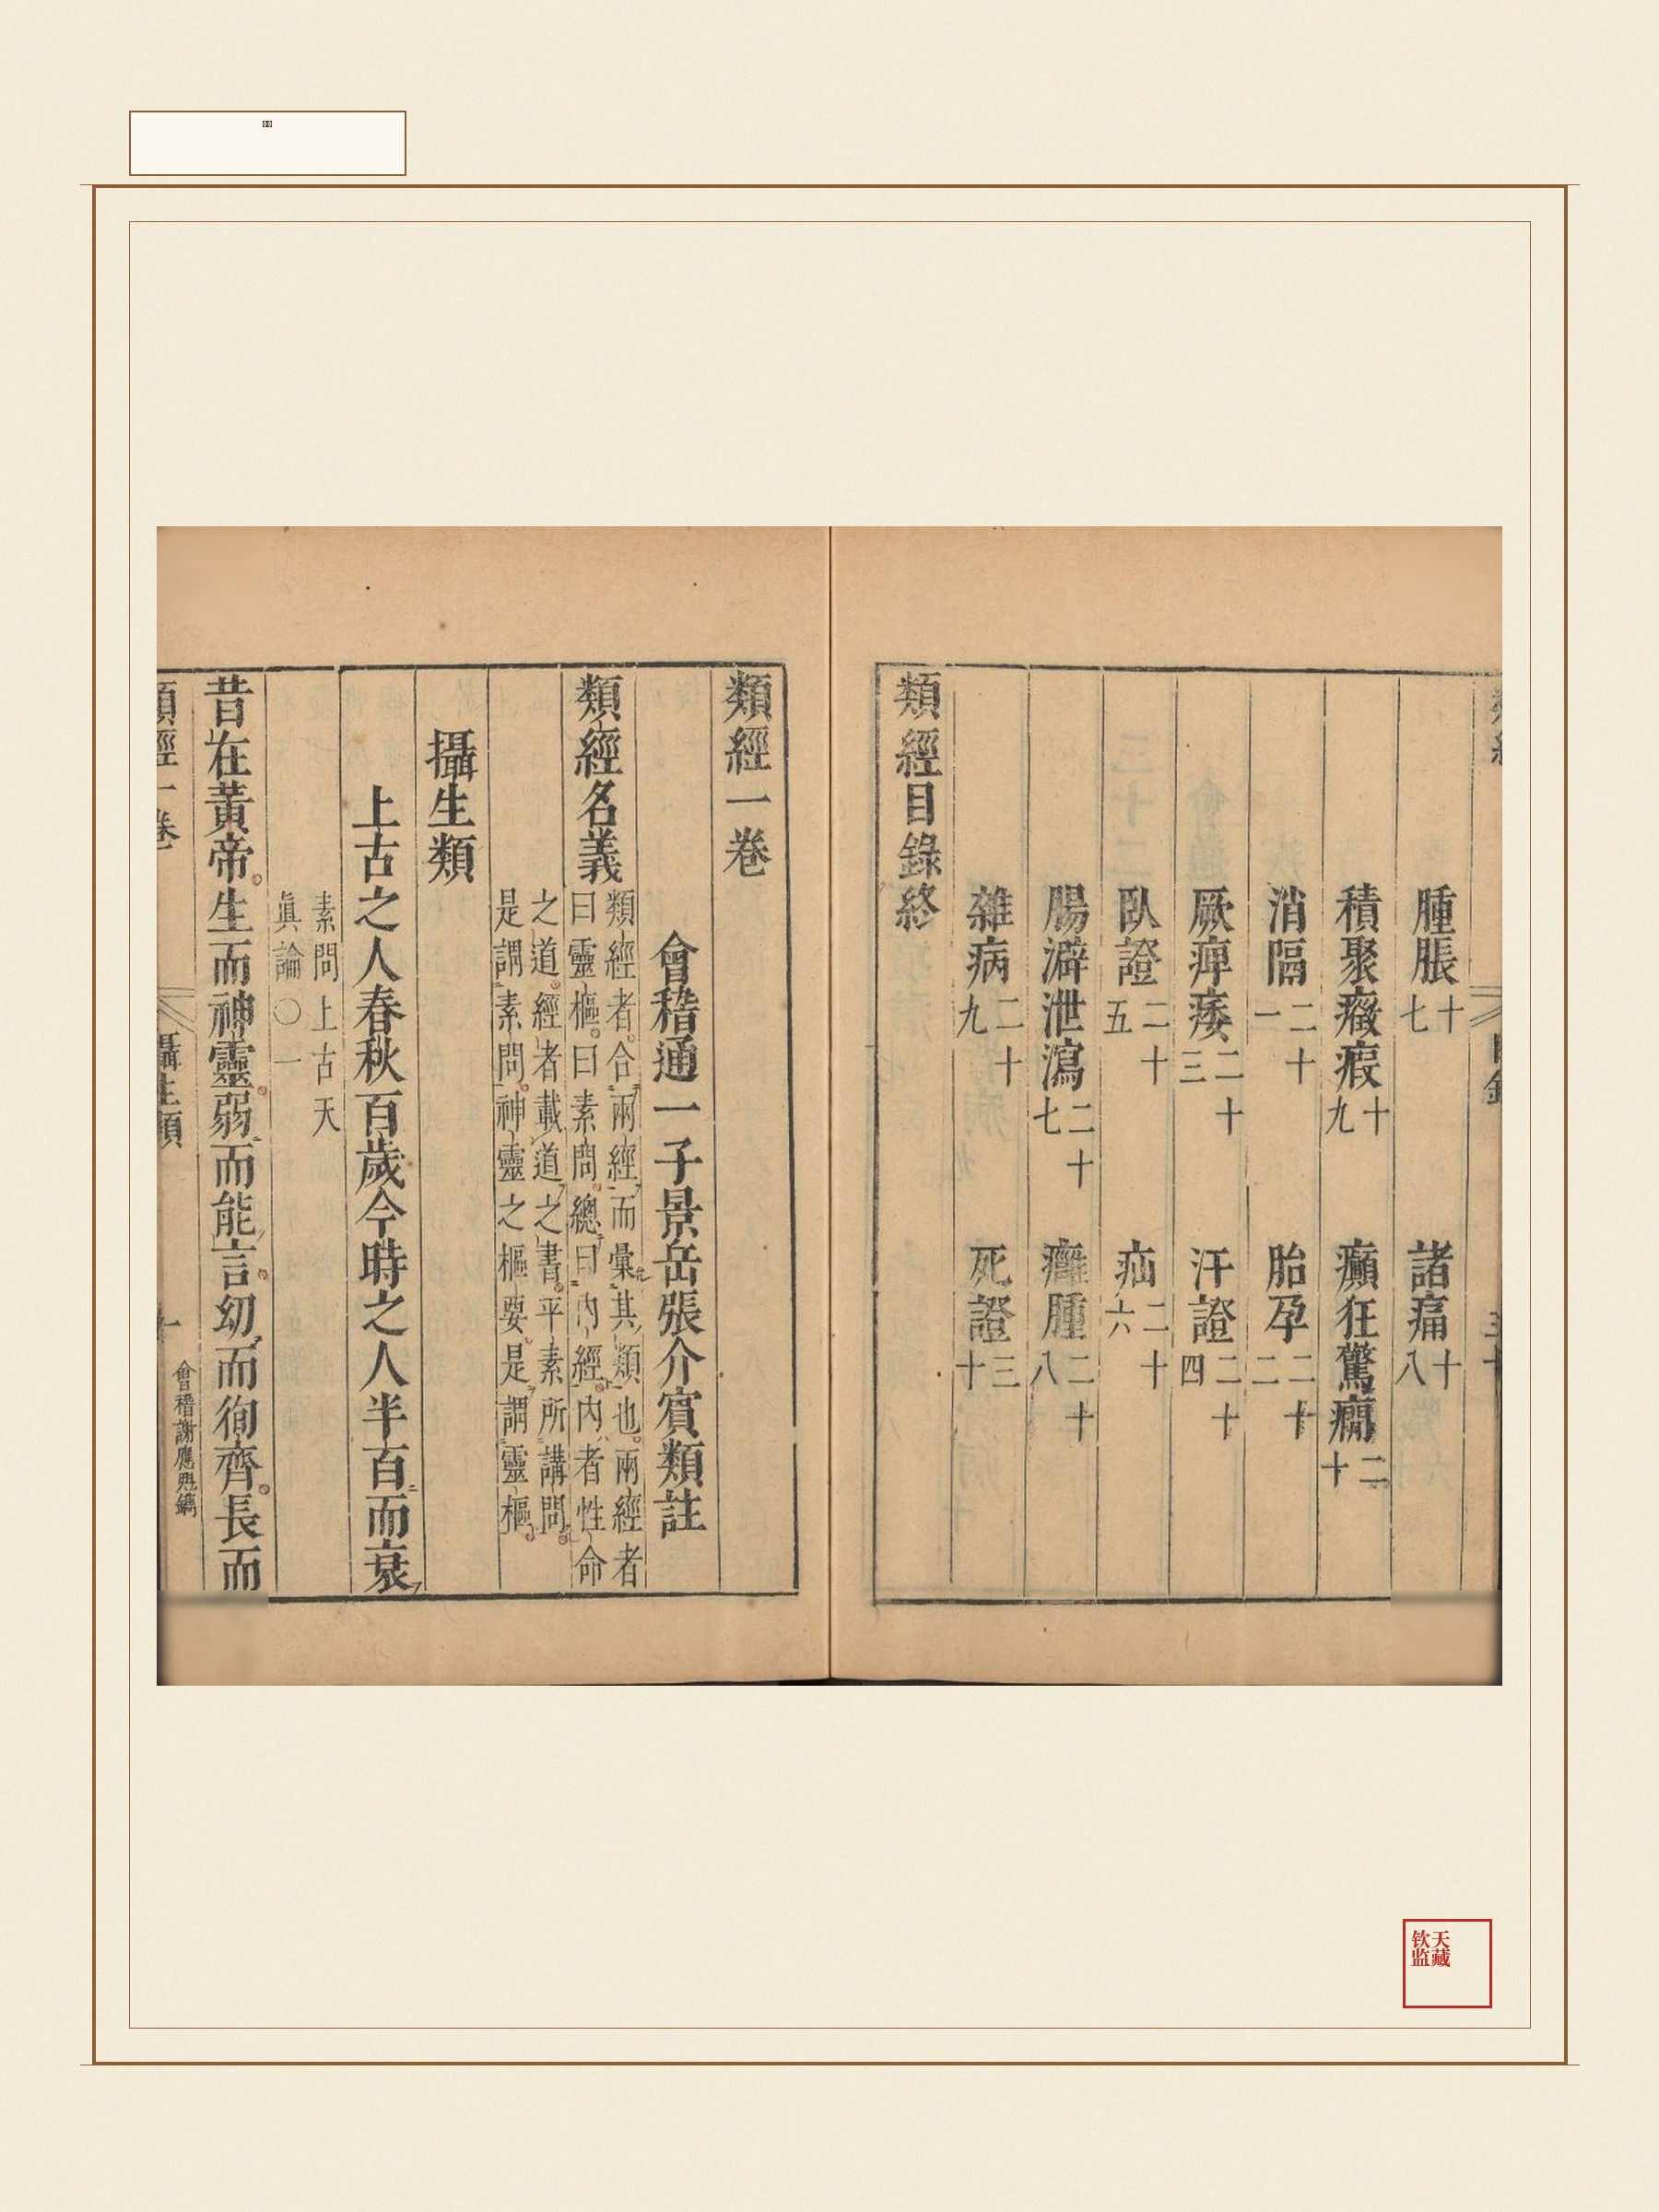 腫脹十七 諸痛十八
積聚癥瘕十九 癲狂驚癇二十
消隔二十一 胎孕二十二
厥痺痿二十三 汗證二十四
臥證二十五 疝二十六
腸澼泄瀉二十七 癰腫二十八
雜病二十九 死證三十
類經目錄終
類經一卷
會稽通一子景岳張介賓類註
類經名義
類經者合兩經而彙其類也兩經者
曰靈樞曰素問總曰內經內者性命
之道經者載道之書平素所講問
是謂素問神靈之樞要是謂靈樞
攝生類
上古之人春秋百歲今時之人半百而衰
素問上古天
眞論〇一
昔在黃帝生而神靈弱而能言幼而徇齊長而
類經一卷 攝生類 一
會稽謝應魁鐫
钦天
监藏